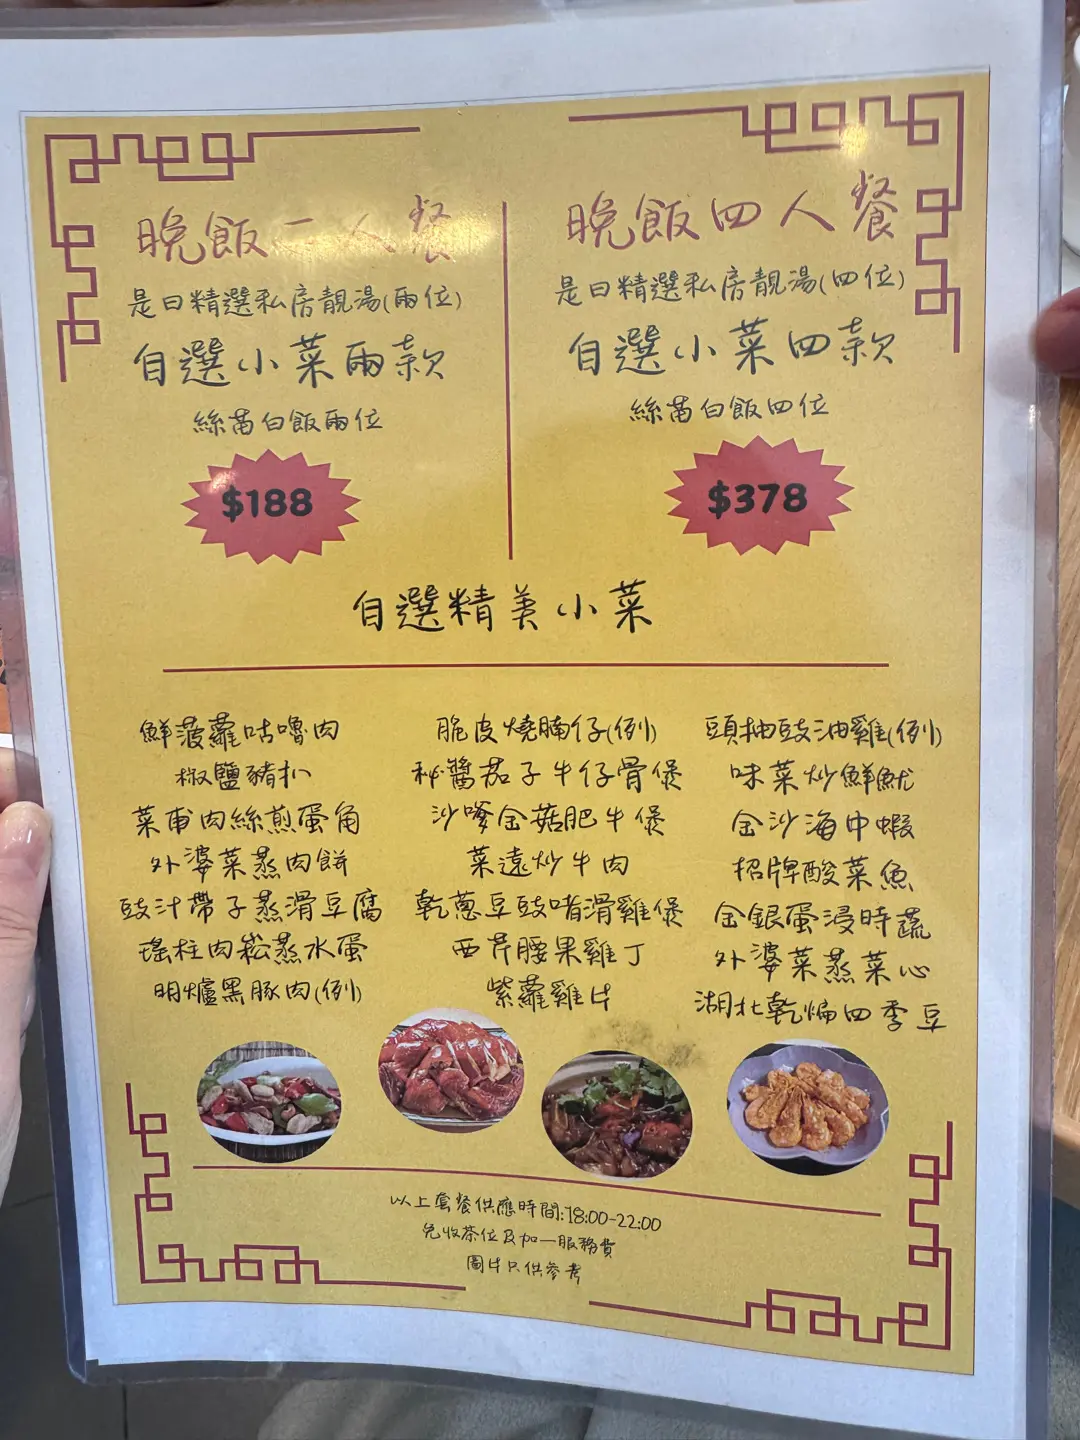 晚飯二人餐
是日精選私房靚湯(兩位)
自選小菜兩款
絲苗白飯兩位
$188
晚飯四人餐
是日精選私房靚湯(四位)
自選小菜四款
絲苗白飯四位
$378
自選精美小菜
鮮菠蘿咕嚕肉
椒鹽豬扒
菜甫肉絲煎蛋角
外婆菜蒸肉餅
豉汁帶子蒸滑豆腐
瑤柱肉崧蒸水蛋
明爐黑豚肉(例)
脆皮燒腩仔(例)
秘醬茄子牛仔骨煲
沙嗲金菇肥牛煲
菜遠炒牛肉
乾蔥豆豉啫滑雞煲
西芹腰果雞丁
紫蘿雞片
頭抽豉油雞(例)
味菜炒鮮魷
金沙海中蝦
招牌酸菜魚
金銀蛋浸時蔬
外婆菜蒸菜心
湖北乾煸四季豆
以上套餐供應時間:18:00-22:00
免收茶位及加一服務費
圖片只供參考